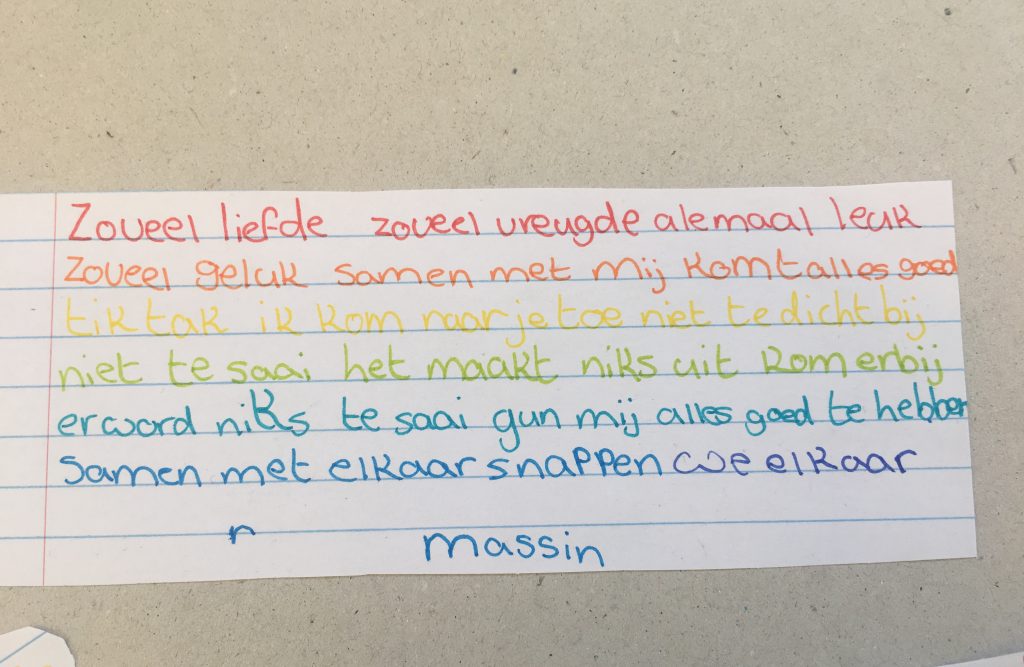 Zoveel liefde zoveel vreugde alemaal leuk
zoveel geluk samen met mij komt alles goed
tik tak ik kom naar je toe niet te dicht bij
niet te saai het maakt niks uit kom erbij
er word niks te saai gun mij alles goed te hebben
samen met elkaar snappen we elkaar
r massin